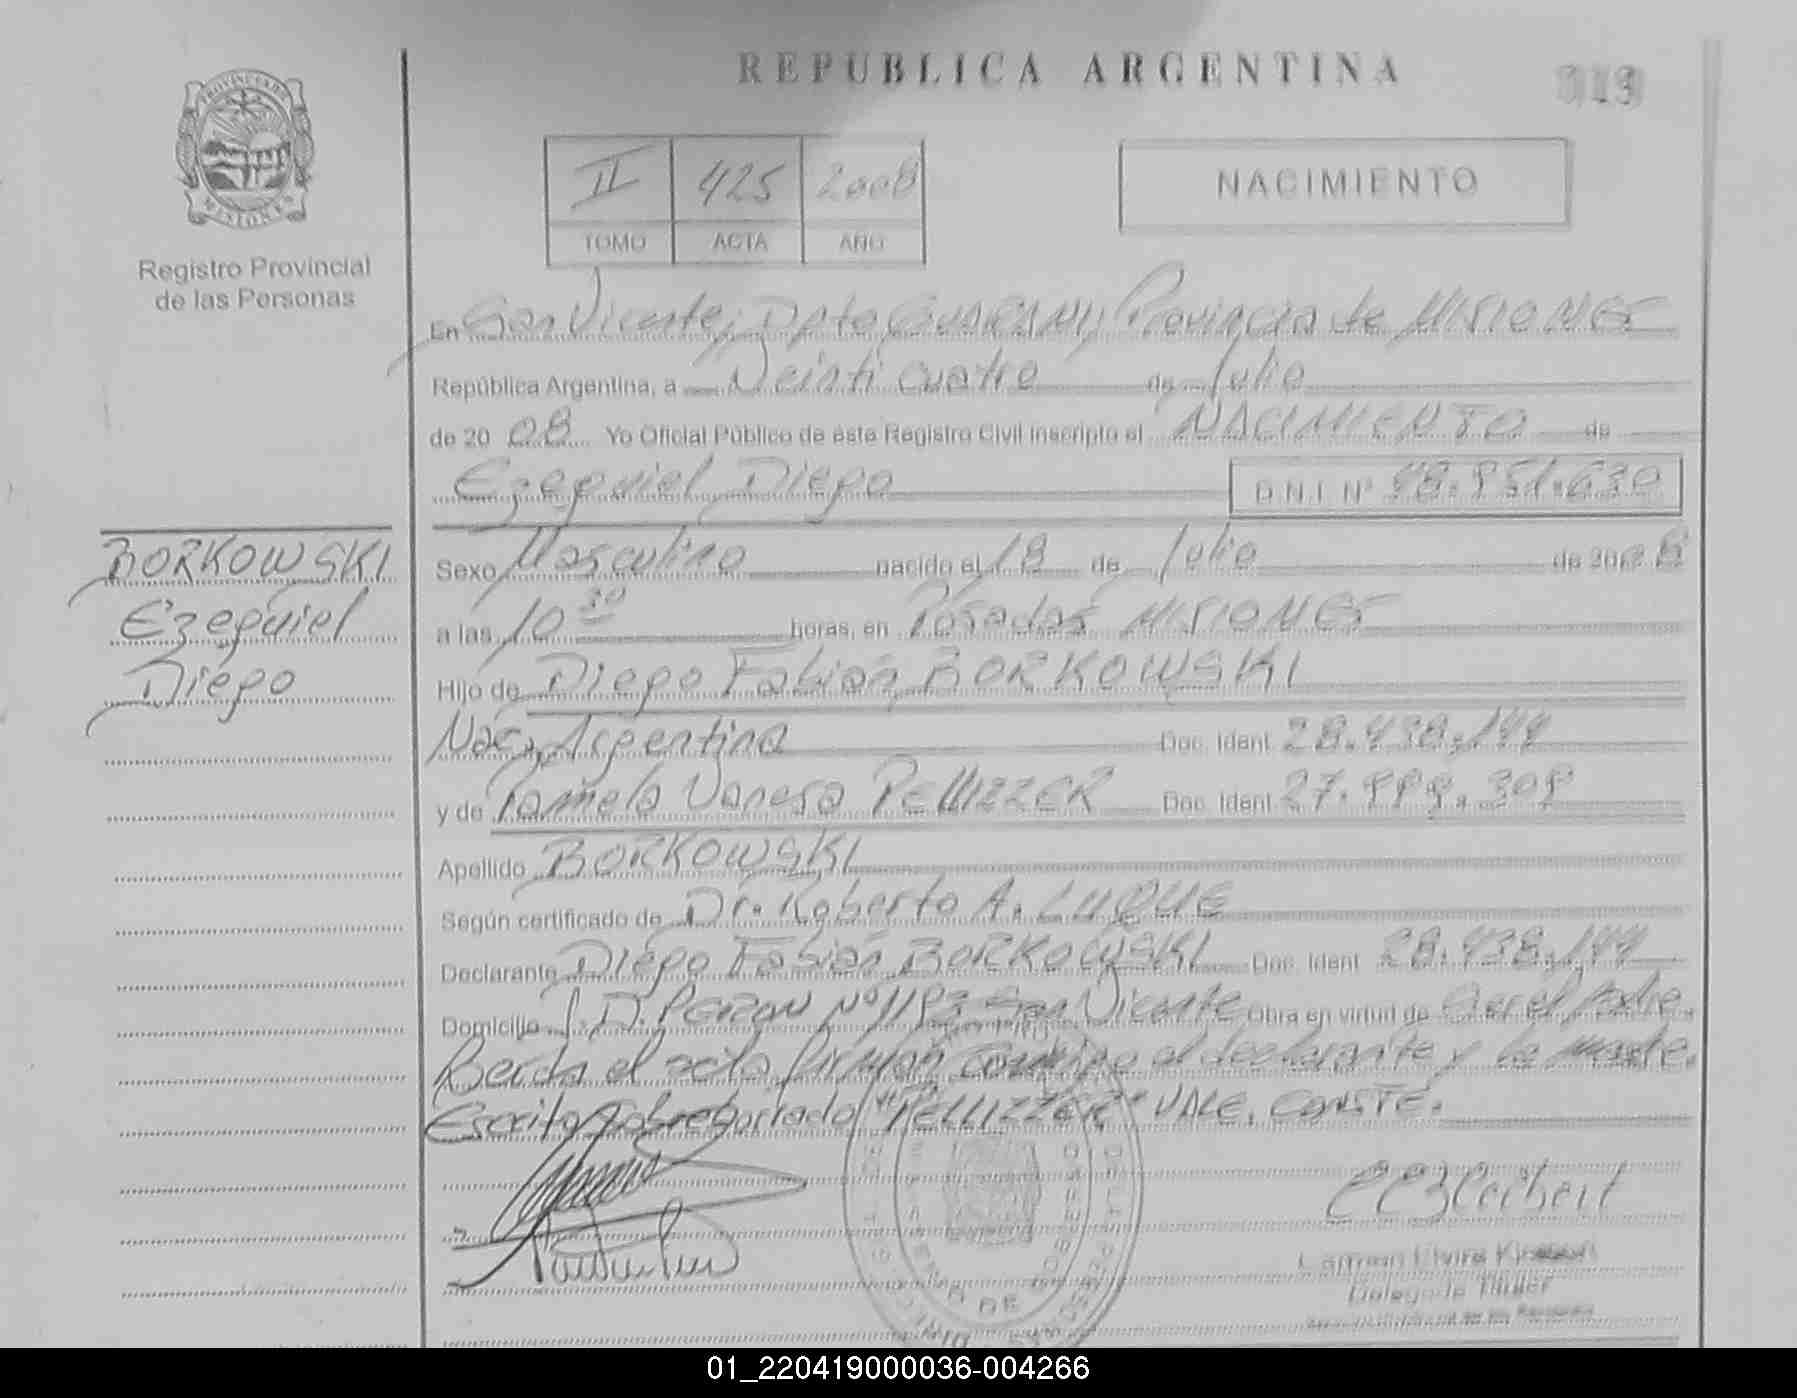 REPUBLICA ARGENTINA
313
PROVINCIA DE
MISIONES
Registro Provincial
de las Personas
II 425 2008
TOMO ACTA AÑO
NACIMIENTO
En San Vicente, Dpto GUARANI, Provincia de MISIONES
República Argentina, a Veinti cuatro de Julio
de 20 08 Yo Oficial Público de este Registro Civil inscripto el NACIMIENTO de
Ezequiel Diego D.N.I. N° 48.951.630
BORKOWSKI
Ezequiel
Diego
Sexo Masculino nacido el 18 de Julio de 2008
a las 10 30 horas, en Posadas MISIONES
Hijo de Diego Fabián BORKOWSKI
Nac. Argentina Doc. Ident 28.438.144
y de Pamela Vanesa PELLIZZER Doc. Ident 27.999.309
Apellido BORKOWSKI
Según certificado de Dr. Roberto A. LUQUE
Declarante Diego Fabián BORKOWSKI Doc. Ident 28.438.144
Domicilio J. D. PERON Nº 1193 San Vicente Obra en virtud de Ser el Padre.
el acta firman conmigo el declarante y la Madre.
Escrito sobreborrado "PELLIZZER" VALE. CONSTE.
Carmen Elvira
Delegada Titular
01_220419000036-004266